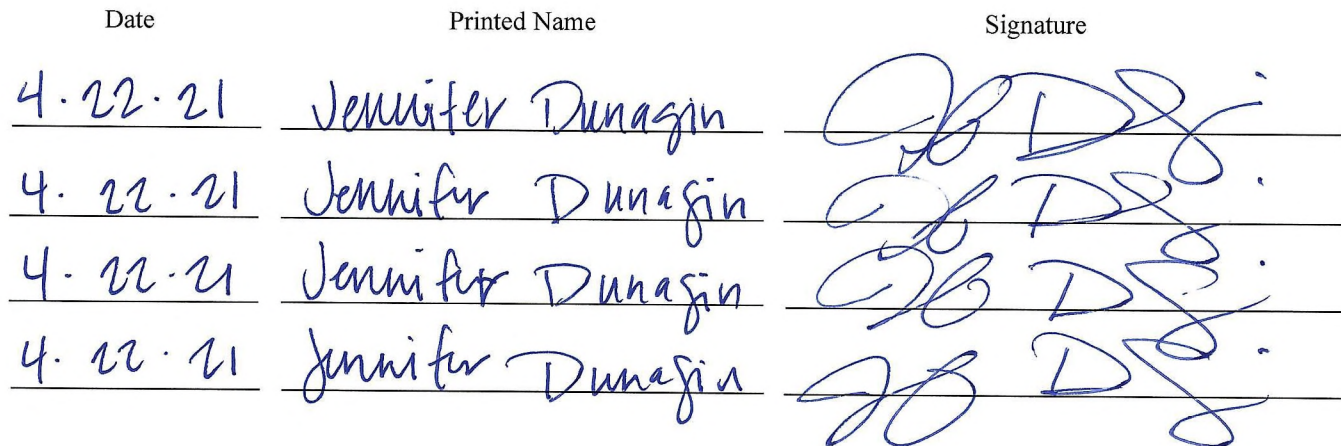 Date Printed Name Signature
4.22.21 Jennifer Dunagin
4.22.21 Jennifer Dunagin
4.22.21 Jennifer Dunagin
4.22.21 Jennifer Dunagin